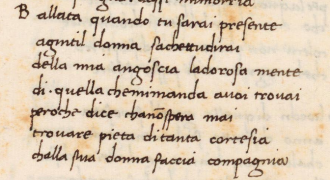 Ballata quando tu sarai presente
agentil donna sachettudirai
della mia angoscia ladorosa mente
di. quella chemimanda avoi trovai
peroche dice chanōspera mai
trovare pieta ditanta cortesia
challa sua donna faccia compagnia